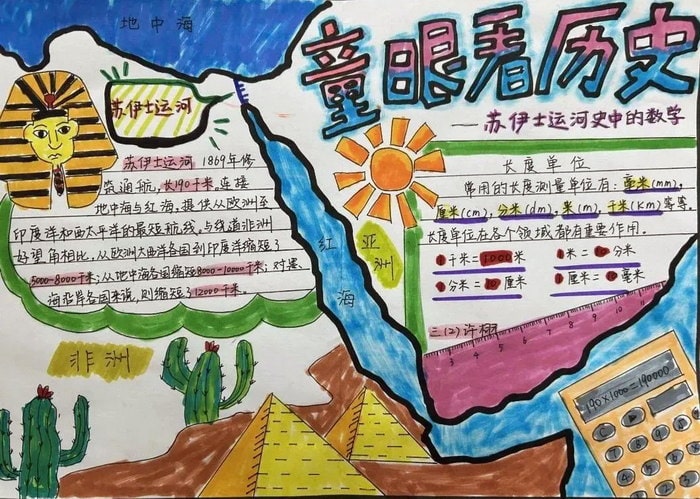 地中海
童眼看历史
——苏伊士运河史中的数学
苏伊士运河
苏伊士运河 1869年修
筑通航,长190千米,连接
地中海与红海,提供从欧洲至
印度洋和西太平洋的最短航线,与绕道非洲
好望角相比,从欧洲大西洋各国到印度洋缩短了
5000-8000千米;从地中海各国缩短8000-10000千米;对黑
海沿岸各国来说,则缩短了12000千米。
非洲
红海
亚洲
长度单位
常用的长度测量单位有:毫米(mm),
厘米(cm),分米(dm),米(m),千米(Km)等等。
长度单位在各个领域都有重要作用。
1千米=1000米 1米=10分米
1分米=10厘米 1厘米=10毫米
三(2)许栩
3 4 5 6 7 8 9 10 11
190×1000=190000